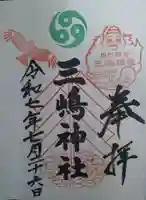 奉拝
三嶋神社
令和七年七月二十六日